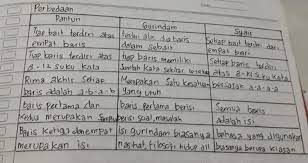 Perbedaan
Pantun Gurindam Syair
Tiap bait terdiri atas terdiri atas dua baris Setiap bait terdiri dari
empat baris dalam sebait empat baris
Tiap baris terdiri atas tiap baris memiliki Setiap baris terdiri
8-12 suku kata Jumlah kata sekitar atas 8-12 suku kata
Rima akhir setiap Merupakan satu kesatuan bersajak a-a-a-a
baris adalah a-b-a-b yang utuh
baris pertama dan baris pertama berisi Semua baris
Kedua merupakan Sampiran soal, masalah adalah isi
Baris ketiga dan empat isi gurindam biasanya bahasa yang digunakan
merupakan isi nasihat, filosofi hidup biasanya berupa kiasan